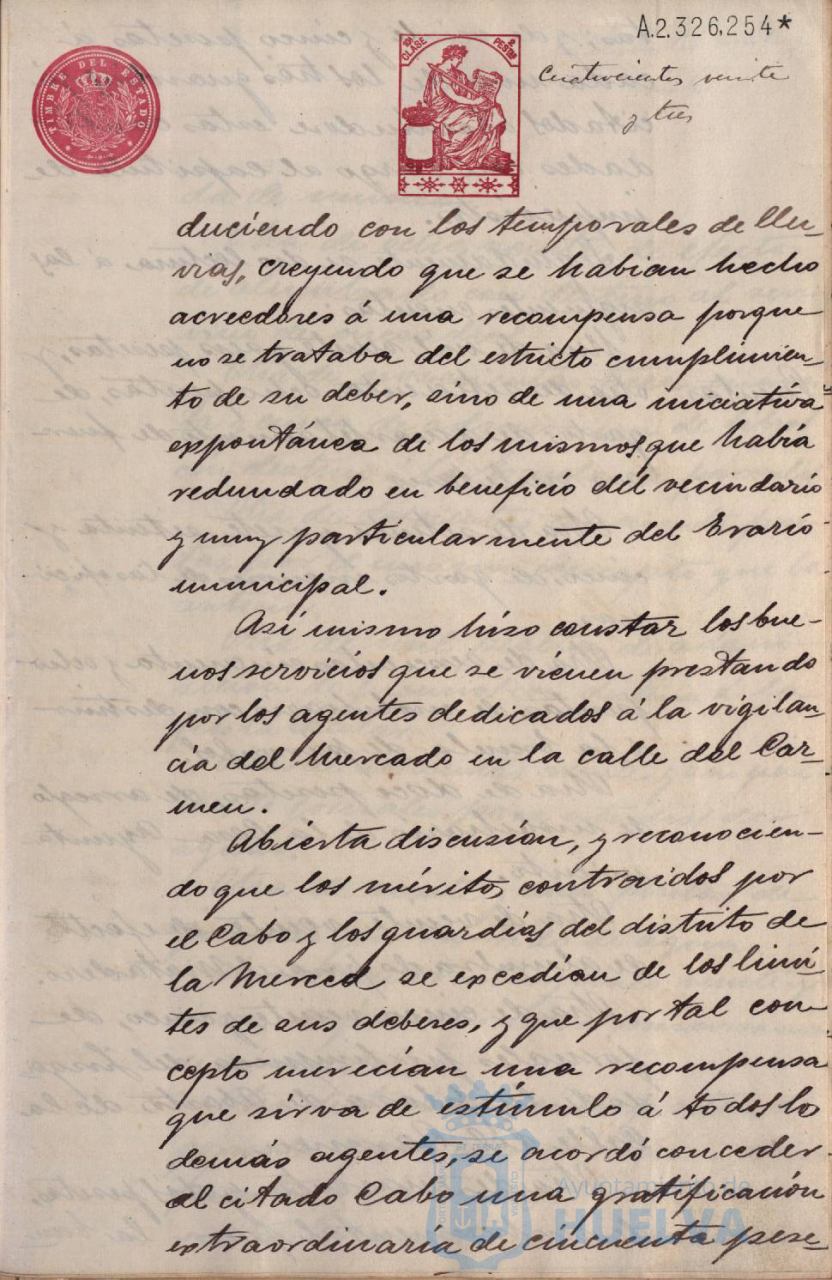 A.2.326,254*
TIMBRE DEL ESTADO
10ª CLASE 2 PESTAS
Cuatrocientos veinte
y tres
duciendo con los temporales de llu-
vias, creyendo que se habian hecho
acreedores á una recompensa porque
no se trataba del estricto cumplimien-
to de su deber, sino de una iniciativa
expontánea de los mismos que había
redundado en beneficio del vecindario
y muy particularmente del Erario
municipal.
Así mismo hizo constar los bue-
nos servicios que se vienen prestando
por los agentes dedicados á la vigilan-
cia del Mercado en la calle del Car-
men.
Abierta discusión, y reconocien-
do que los méritos contraidos por
el Cabo y los guardias del distrito de
la Merced se excedían de los lími-
tes de sus deberes, y que por tal con-
cepto merecían una recompensa
que sirva de estímulo á todos lo
demás agentes, se acordó conceder
al citado Cabo una gratificación
extraordinaria de cincuenta pese-
Ayuntamiento de
HUELVA